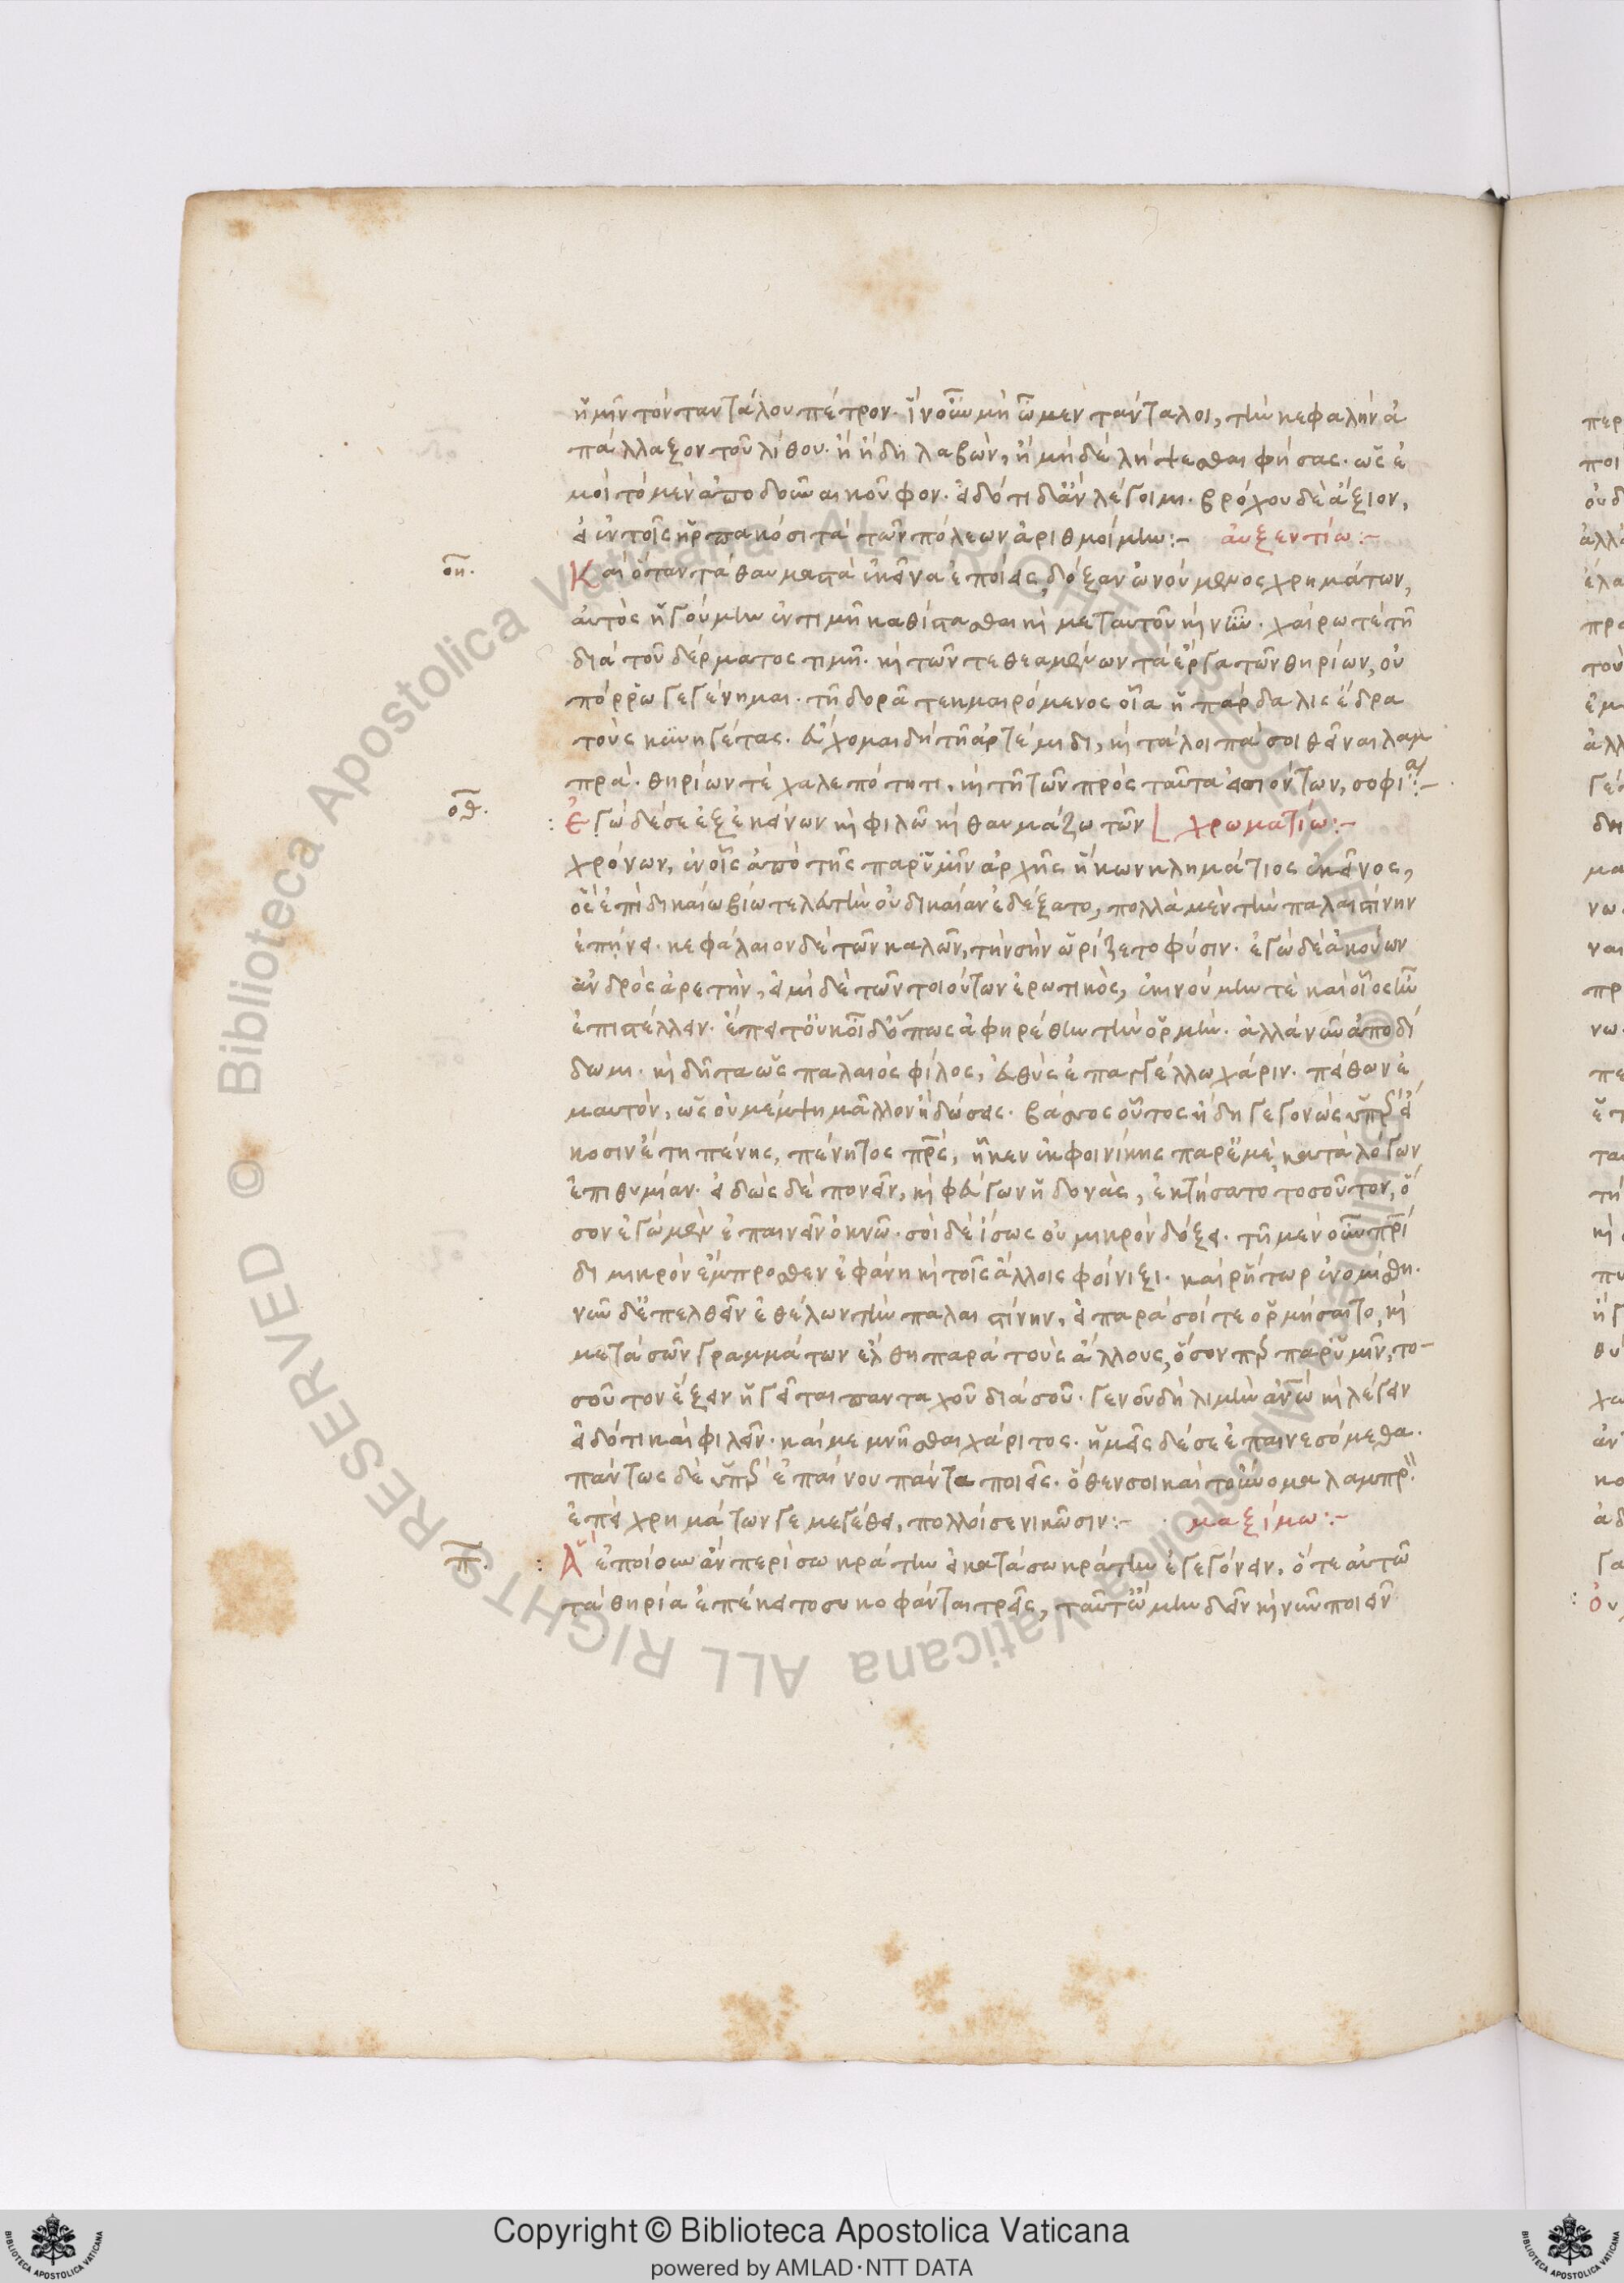 ἡμῖν τὸν ταντάλου πέτρον· ἵν οὖν μὴ ὦμεν τάνταλοι, τὴν κεφαλὴν ἀ
πάλλαξον τοῦ λίθου· ἢ ἤδη λαβὼν, ἢ μηδὲ λήψεσθαι φήσας· ὡς ἐ
μοὶ τὸ μὲν ἀποδοῦναι κοῦφον· εἰδότι δἂν λέγοιμι· βρόχου δὲ ἄξιον,
εἰ ἐν τοῖς ἡρπακόσι τὰ τῶν πόλεων ἀριθμοίμην:- αὐξεντίω:-
οη.
Καὶ ὅταν τὰ θαυμαστὰ ἐκεῖνα ἐποίεις, δόξαν ὠνούμενος χρημάτων,
αὐτὸς ἡγούμην ἐν τιμῆ καθίστασθαι κὶ μετ αυτὸν κὶ νῦν· χαίρω τὲ τῆ
διὰ τοῦ δέρματος τιμῆ· κὶ τῶν τεθεαμένων τὰ ἔργα τῶν θηρίων, οὐ
πόρρω γεγένημαι· τῆ δορᾶ τεκμαιρόμενος οἷα ἡ πάρδαλις ἔδρα
τοὺς κυνηγέτας· εὔχομαι δὴ τῆ ἀρτέμιδι, κὶ τὰ λοιπά σοι θεῖναι λαμ
πρά· θηρίων τὲ χαλεπότητι, κὶ τῆ τῶν πρὸς ταῦτα ἀπιόντων, σοφία:-
οθ.
Ἐγὼ δέ σε ἐξ ἐκείνων κὶ φιλῶ κὶ θαυμάζω τῶν χρωματίω:-
χρόνων, ἐν οἷς ἀπὸ τῆς παρ ὑμῖν ἀρχῆς ἥκων κλημάτιος ἐκεῖνος,
ὃς ἐπὶ δικαίω βίω τελευτὴν οὐ δικαίαν ἐδέξατο, πολλὰ μὲν τὴν παλαιστίνην
ἐπήνει· κεφάλαιον δὲ τῶν καλῶν, τὴν σὴν ὡρίζετο φύσιν· ἐγὼ δὲ ἀκούων
ἀνδρὸς ἀρετὴν, εἰμὶ δὲ τῶν τοιούτων ἐρωτικὸς, ἐκινούμην τὲ καὶ οἷος ἦν
ἐπιστέλλειν· ἔπειτ οὐκ οἶδ ὅπως ἀφηρέθην τὴν ὁρμήν· ἀλλὰ νῦν ἀποδί
δωμι· κὶ δῆτα ὡς παλαιὸς φίλος, εὐθὺς ἐπαγγέλλω χάριν· πείθων ἐ
μαυτὸν, ὡς οὐ μέμψη μᾶλλον ἢ δώσεις· βάσσος οὗτος ἤδη γεγονὼς ὑπὲρ εἴ
κοσιν ἔτη πένης, πένητος πρς, ἧκεν ἐκ φοινίκης παρ ἐμὲ, κατὰ λόγων
ἐπιθυμίαν· εἰδὼς δὲ πονεῖν, κὶ φεύγων ἡδονὰς, ἐκτήσατο τοσοῦτον, ὅ
σον ἐγὼ μὲν ἐπαινεῖν ὀκνῶ· σοὶ δὲ ἴσως οὐ μικρὸν δόξει· τῆ μὲν οὖν πρί
δι μικρὸν ἔμπροσθεν ἐφάνη κὶ τοῖς ἄλλοις φοίνιξι· καὶ ῥήτωρ ἐνομίσθη·
νῦν δ ἐπελθεῖν ἐθέλων τὴν παλαιστίνην, εἰ παρὰ σοί τε ὁρμήσαιτο, κὶ
μετὰ σῶν γραμμάτων ἔλθη παρὰ τοὺς ἄλλους, ὅσον πὲρ παρ ὑμῖν, το-
σοῦτον ἕξειν ἡγεῖται πανταχοῦ διὰ σοῦ· γενοῦ δὴ λιμὴν ἀνω κὶ λέγειν
εἰδότι καὶ φιλεῖν· καὶ μεμνῆσθαι χάριτος· ἡμεῖς δέ σε ἐπαινεσόμεθα·
πάντως δὲ ὑπὲρ ἐπαίνου πάντα ποιεῖς· ὅθεν σοι καὶ τοὔνομα λαμπρὸν
ἐπεὶ χρημάτων γε μεγέθει, πολλοί σε νικῶσιν:- μαξίμω:-
π.
Ἃ ἐποίουν ἂν περὶ σωκράτην εἰ κατὰ σωκράτην ἐγεγόνειν, ὅτε αὐτῶ
τὰ θηρία ἐπέκειτο συκοφάνται τρεῖς, ταῦτ ᾤμην δεῖν κὶ νῦν ποιεῖν
Copyright © Biblioteca Apostolica Vaticana
powered by AMLAD·NTT DATA